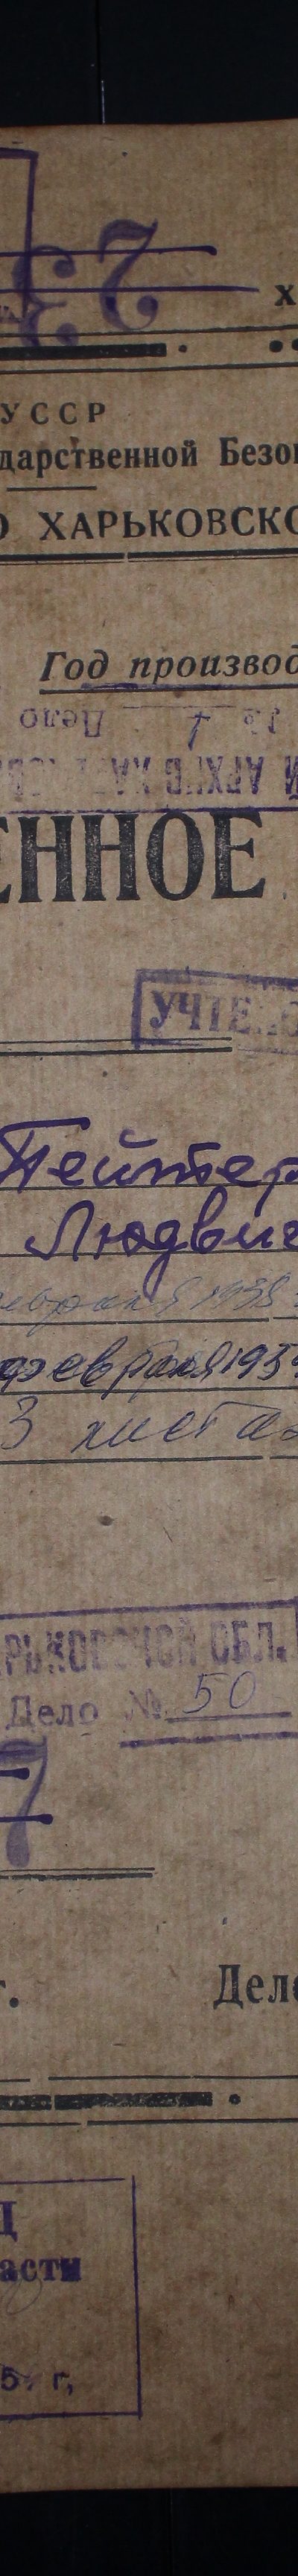 23
Х
УССР
дарственной Безо
О ХАРЬКОВСКО
Год производ
Дело
ЕННОЕ
УЧТЕ
Пейтер
Людвиг
евраля 1938
февраля 193
3 листа
РЬКОВСКОЙ ОБЛ.
Дело № 50
7
г.
Дел
Д
асти
5 г,